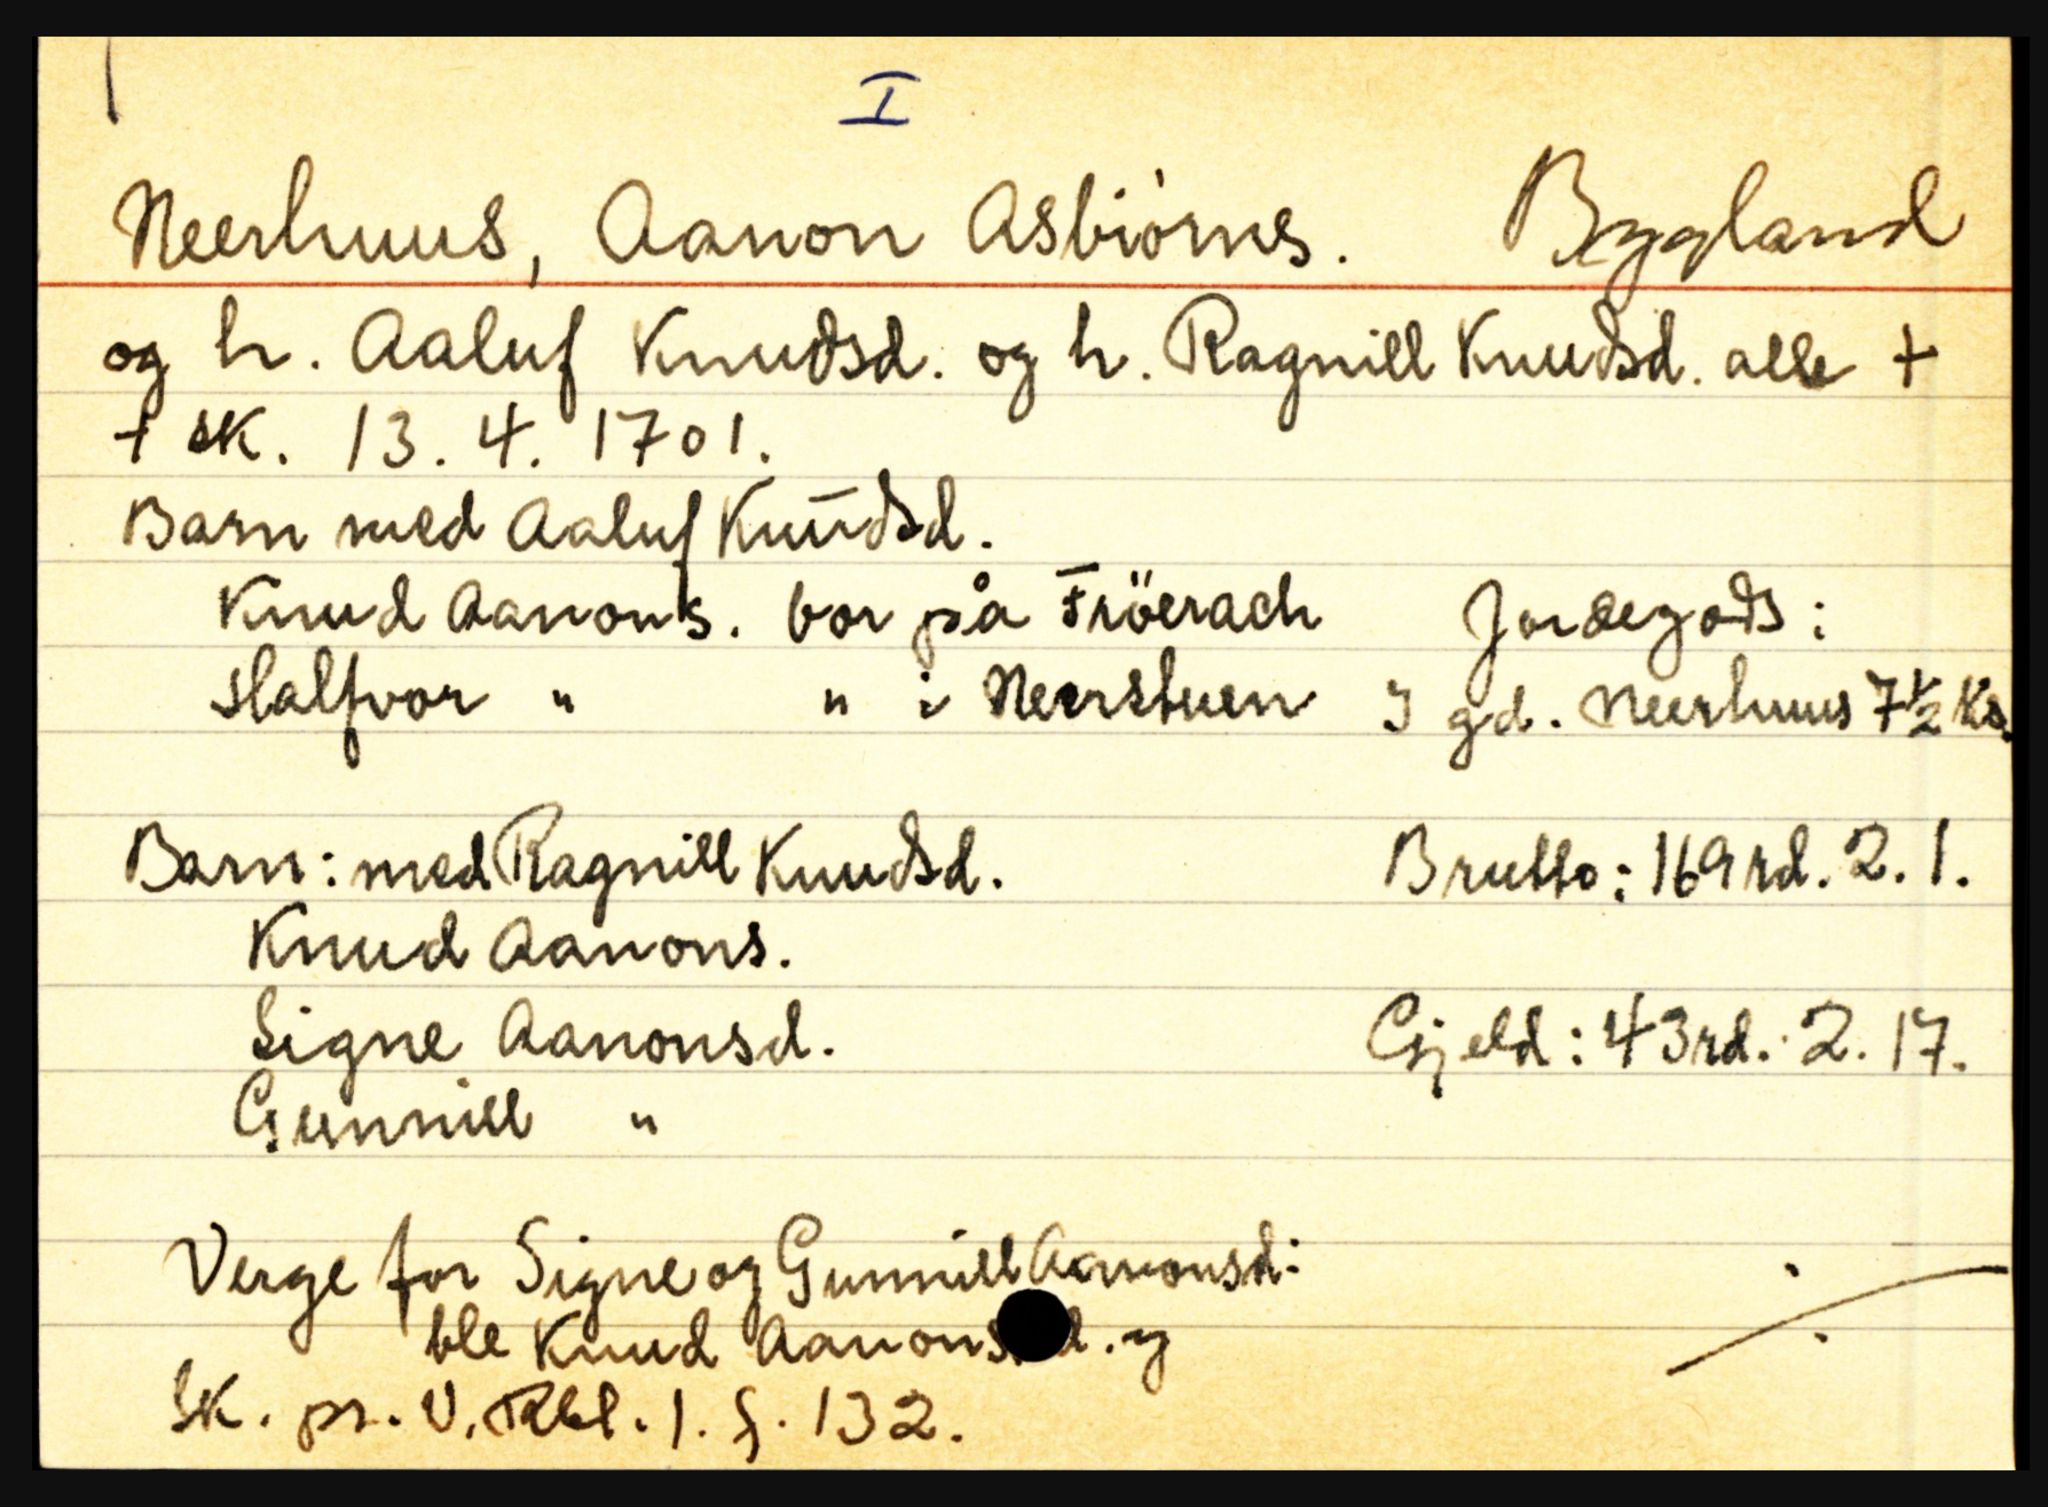 I
Neerhuus, Aanon Asbiørns. Bygland
og h. Aaluf Knudsd. og h. Ragnill Knudsd. alle +
+ sk. 13. 4. 1701.
Barn med Aaluf Knudsd.
Knud Aanons. bor på Fröerach Jordegods:
Halfvor " " i Neerstuen I gd. Neerhuus 7 1/2 Ks.
Barn: med Ragnill Knudsd. Brutto: 169 rd. 2. 1.
Knud Aanons.
Signe Aanonsd. Gjeld: 43 rd. 2. 17.
Gunnill "
Verge for Signe og Gunnill Aanonsd:
ble Knud Aanons d. y
Sk. pr. V. Rbl. 1. S. 132.